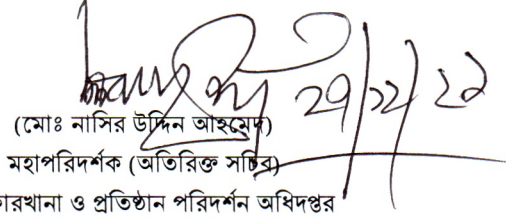 ২৭/১২/২১
(মোঃ নাসির উদ্দিন আহমেদ)
মহাপরিদর্শক (অতিরিক্ত সচিব)
কারখানা ও প্রতিষ্ঠান পরিদর্শন অধিদপ্তর